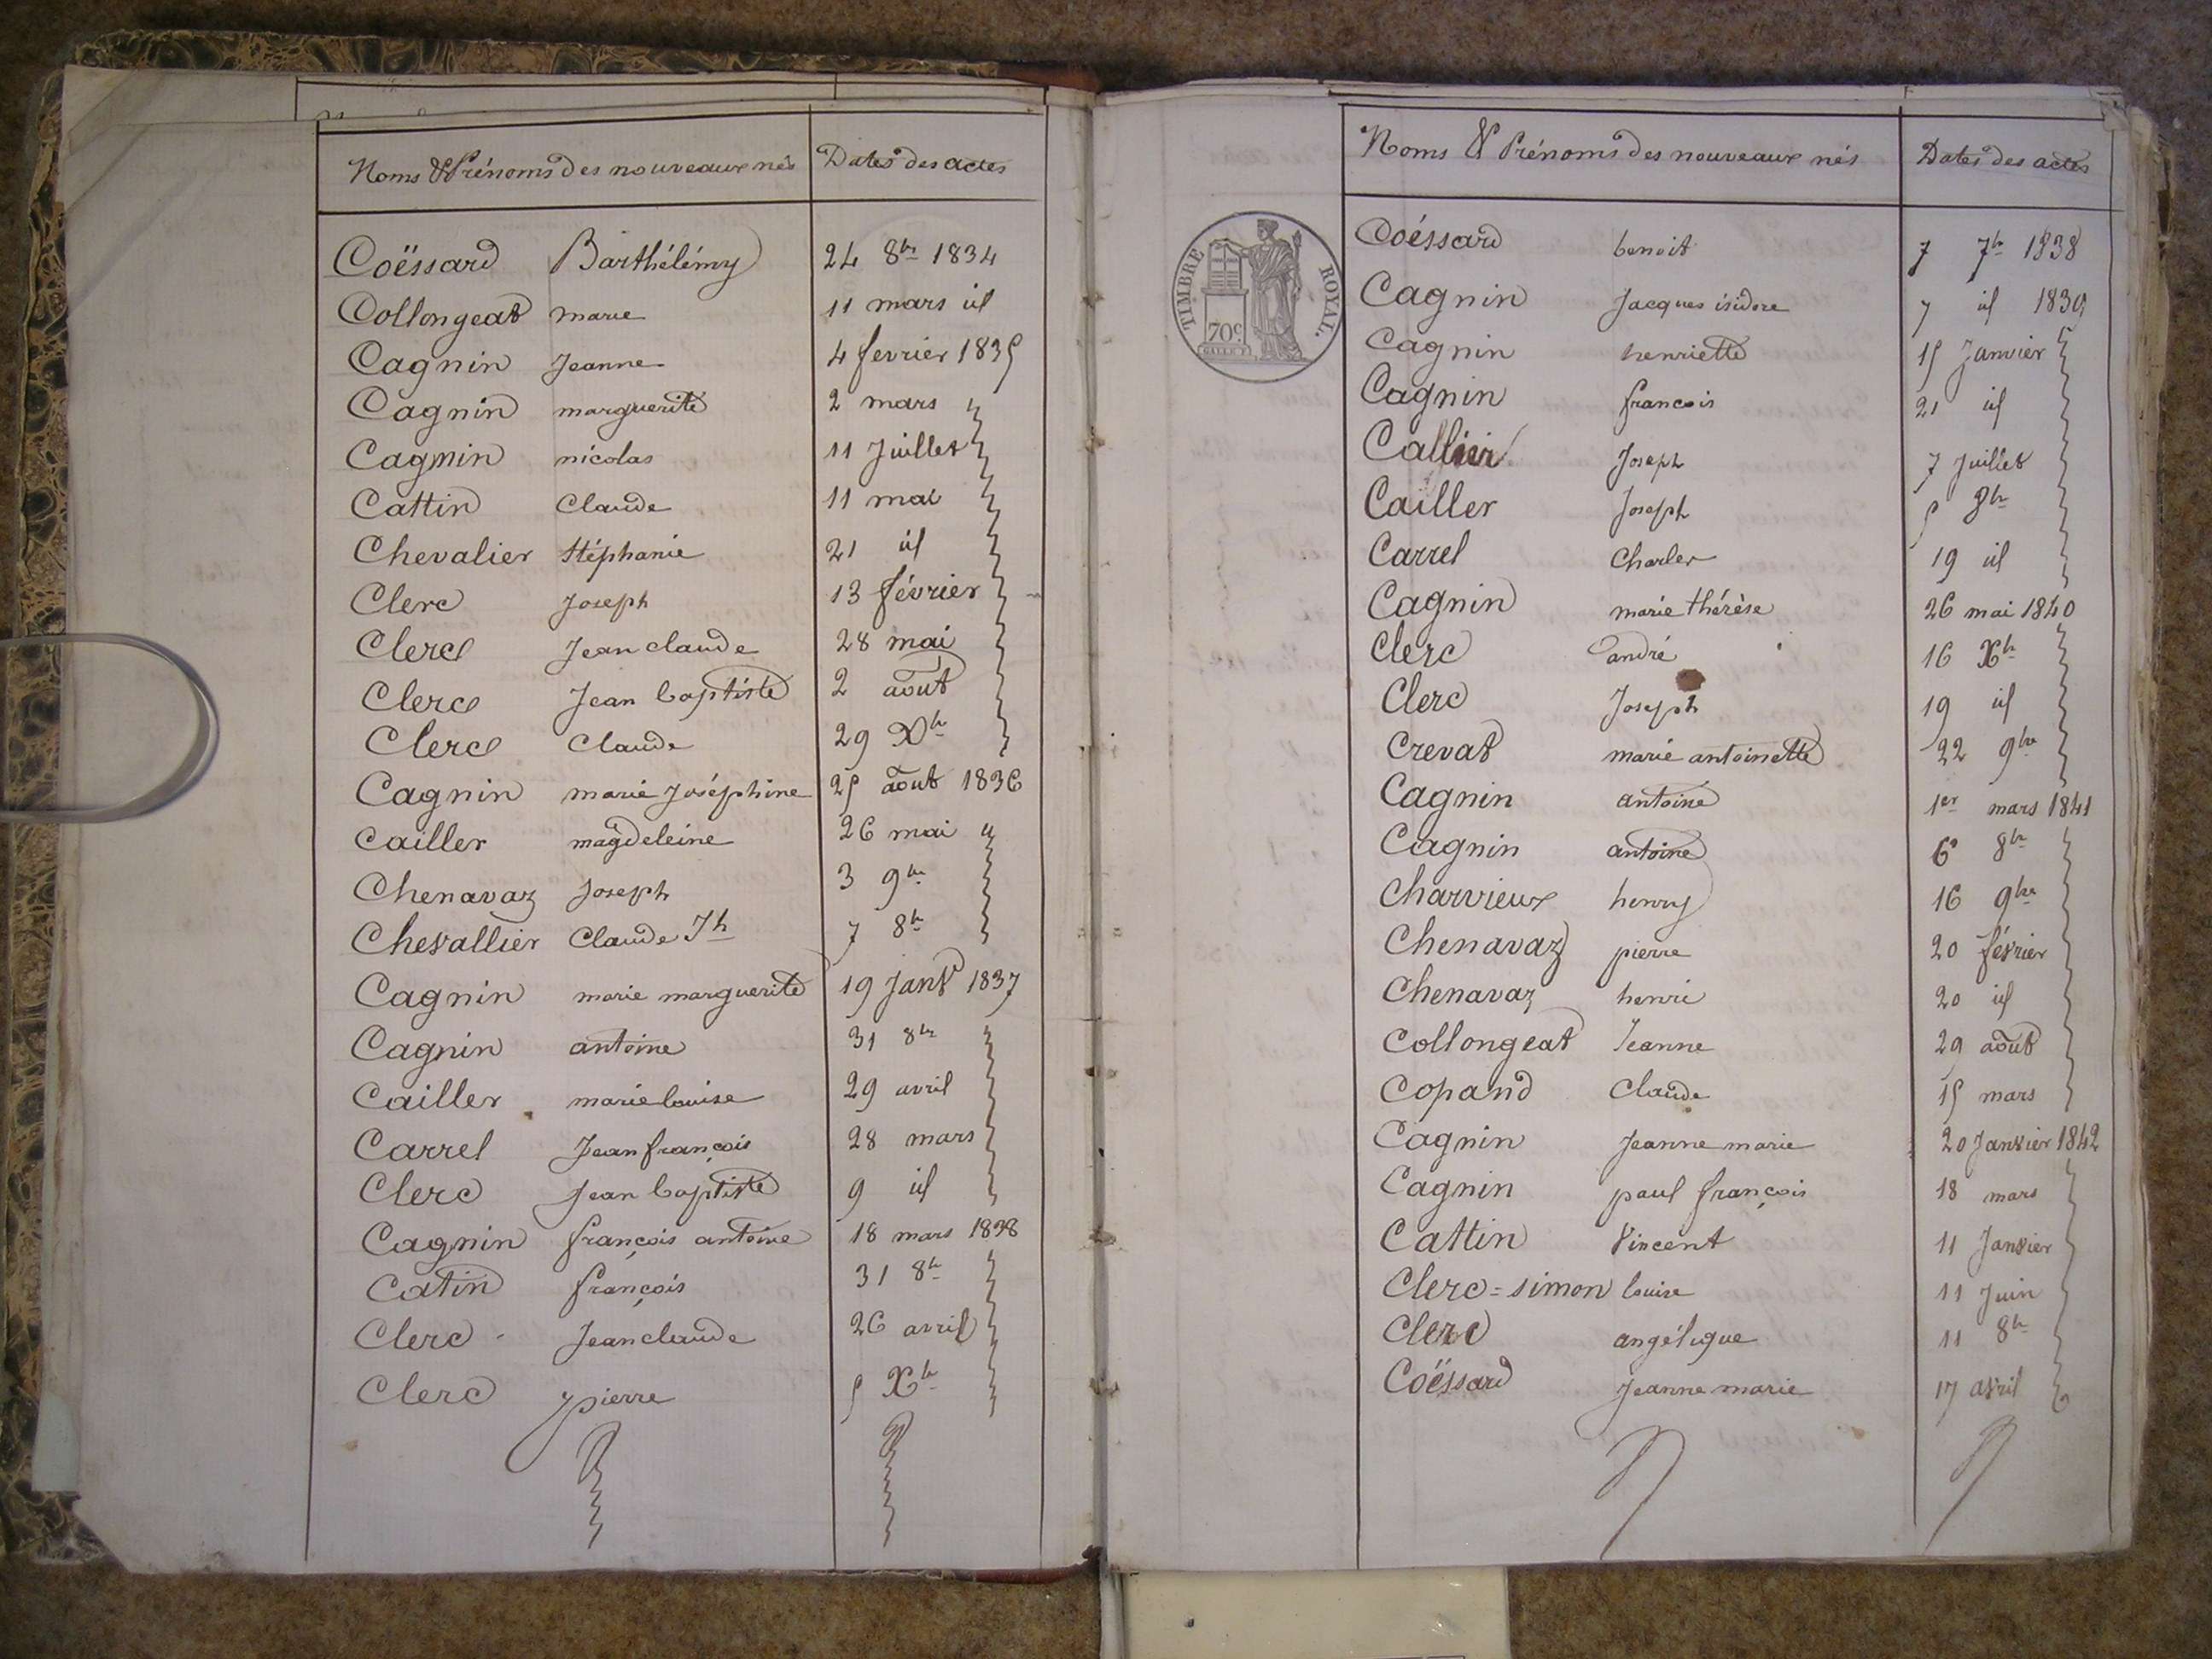 Noms & Prénoms des nouveaux nés Dates des actes
Coëssard Barthélémy 24 8bre 1834
Collongeat marie 11 mars id
Cagnin Jeanne 4 fevrier 1835
Cagnin marguerite 2 mars
Cagnin nicolas 11 Juillet
Cattin Claude 11 mai
Chevalier Stéphanie 21 id
Clerc Joseph 13 février
Clerc Jean claude 28 mai
Clerc Jean baptiste 2 août
Clerc Claude 29 Xbre
Cagnin marie Joséphine 25 août 1836
Cailler magdeleine 26 mai
Chenavaz Joseph 3 9bre
Chevallier Claude Jh 7 8bre
Cagnin marie marguerite 19 Janv 1837
Cagnin antoine 31 8bre
Cailler marie louise 29 avril
Carrel Jean françois 28 mars
Clerc Jean baptiste 9 id
Cagnin françois antoine 18 mars 1838
Catin françois 31 8bre
Clerc Jean claude 26 avril
Clerc pierre 5 Xbre
Noms & Prénoms des nouveaux nés Dates des actes
TIMBRE ROYAL.
70c.
Coéssard benoit 7 7bre 1838
Cagnin Jacques isidore 7 id 1839
Cagnin henriette 15 Janvier
Cagnin francois 21 id
Callier Joseph 7 Juillet
Cailler Joseph 5 8bre
Carrel Charles 19 id
Cagnin marie thérèse 26 mai 1840
Clerc andré 16 Xbre
Clerc Joseph 19 id
Crevat marie antoinette 22 9bre
Cagnin antoine 1er mars 1841
Cagnin antoine 6 8bre
Charvieux henry 16 9bre
Chenavaz pierre 20 février
Chenavaz henri 20 id
Collongeat Jeanne 29 août
Copand Claude 15 mars
Cagnin Jeanne marie 20 Janvier 1842
Cagnin paul françois 18 mars
Cattin Vincent 11 Janvier
Clerc=simon louise 11 Juin
Clerc angélique 11 8bre
Coëssard Jeanne marie 17 avril